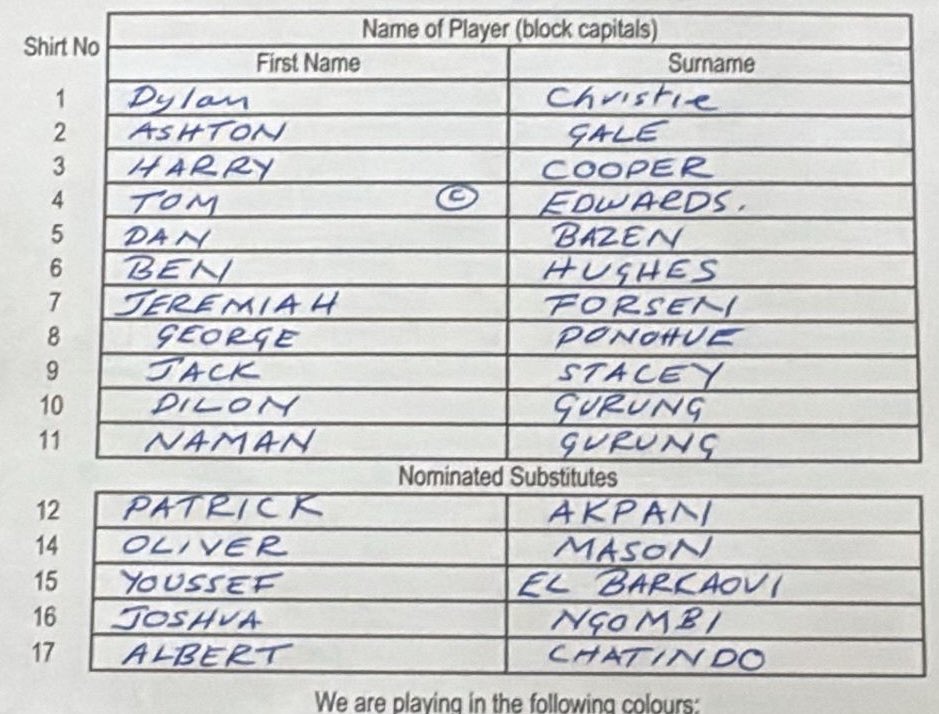 Name of Player (block capitals)
Shirt No
First Name Surname
1 Dylan Christie
2 ASHTON GALE
3 HARRY COOPER
4 TOM © EDWARDS.
5 DAN BAZEN
6 BEN HUGHES
7 JEREMIAH FORSEN
8 GEORGE DONOHUE
9 JACK STACEY
10 DILON GURUNG
11 NAMAN GURUNG
Nominated Substitutes
12 PATRICK AKPAN
14 OLIVER MASON
15 YOUSSEF EL BARKAOUI
16 JOSHUA NGOMBI
17 ALBERT CHATINDO
We are playing in the following colours: